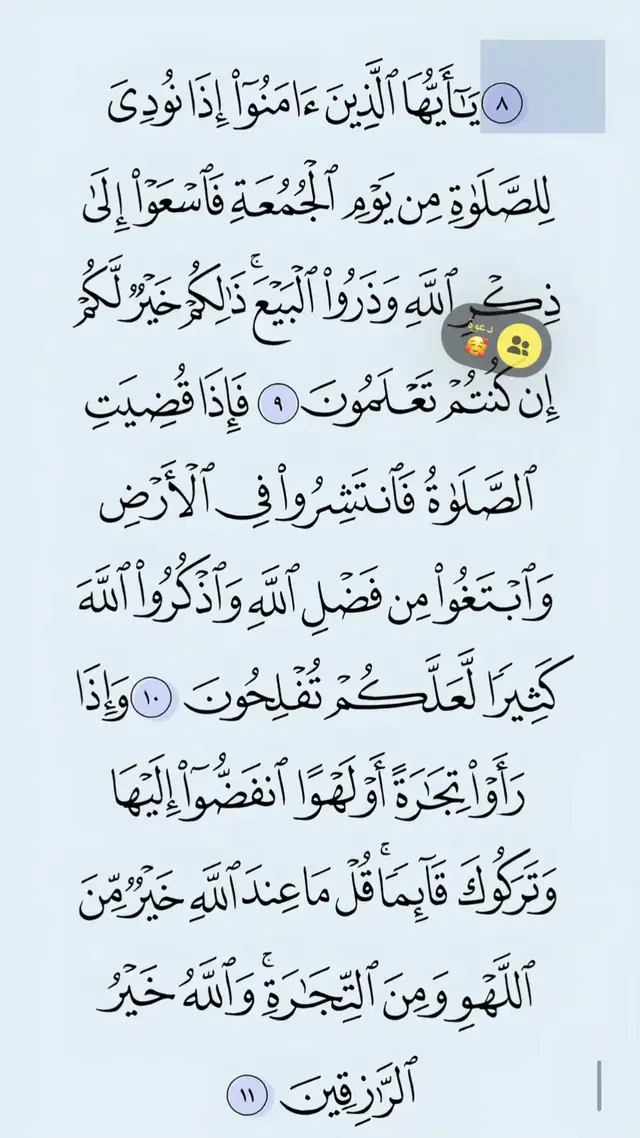 ٨ يَـٰٓأَيُّهَا ٱلَّذِينَ ءَامَنُوٓا۟ إِذَا نُودِىَ
لِلصَّلَوٰةِ مِن يَوْمِ ٱلْجُمُعَةِ فَٱسْعَوْا۟ إِلَىٰ
ذِكْرِ ٱللَّهِ وَذَرُوا۟ ٱلْبَيْعَ ۚ ذَٰلِكُمْ خَيْرٌ لَّكُمْ
دعوة
🥰
إِن كُنتُمْ تَعْلَمُونَ ٩ فَإِذَا قُضِيَتِ
ٱلصَّلَوٰةُ فَٱنتَشِرُوا۟ فِى ٱلْأَرْضِ
وَٱبْتَغُوا۟ مِن فَضْلِ ٱللَّهِ وَٱذْكُرُوا۟ ٱللَّهَ
كَثِيرًا لَّعَلَّكُمْ تُفْلِحُونَ ١٠ وَإِذَا
رَأَوْا۟ تِجَـٰرَةً أَوْ لَهْوًا ٱنفَضُّوٓا۟ إِلَيْهَا
وَتَرَكُوكَ قَآئِمًا ۚ قُلْ مَا عِندَ ٱللَّهِ خَيْرٌ مِّنَ
ٱللَّهْوِ وَمِنَ ٱلتِّجَـٰرَةِ ۚ وَٱللَّهُ خَيْرُ
ٱلرَّٰزِقِينَ ١١